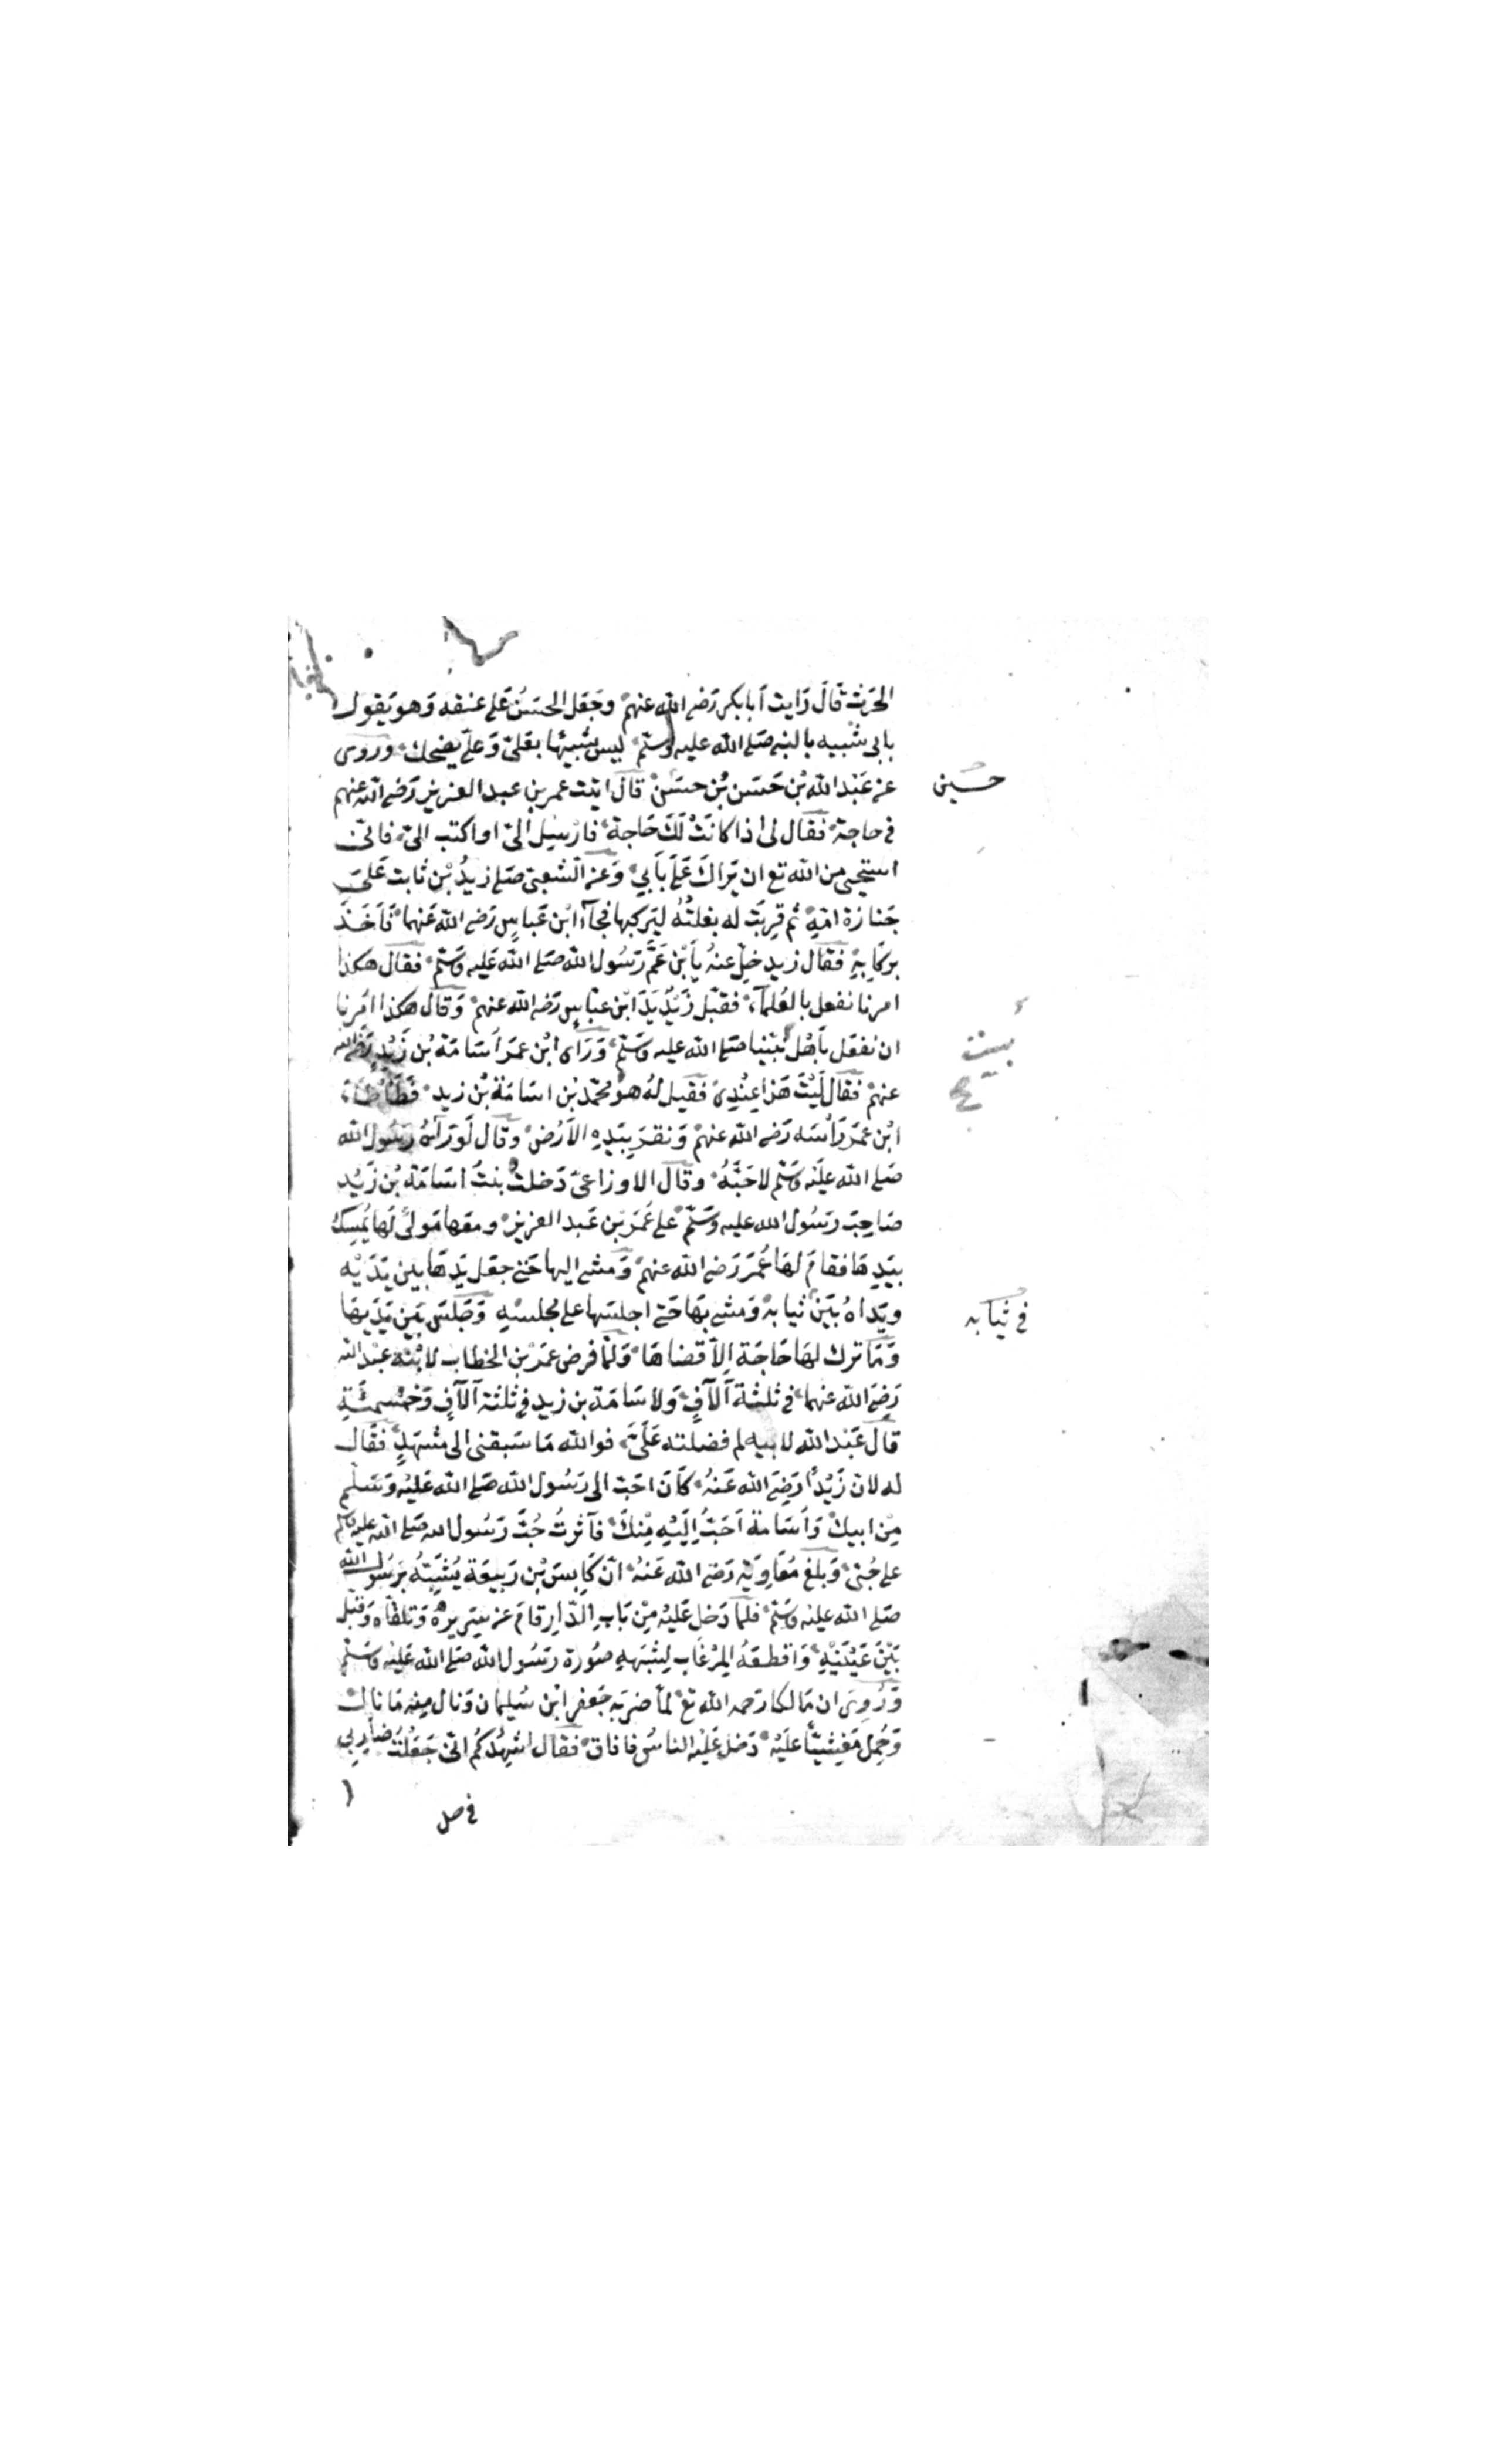 الحرث قَالَ رَايت اَبا بكر رَضى الله عنهم وجَعَل الحسَنُ عَلى عنقه وَهو يَقول
بابى شَبيه بالنبى صَلى الله عليه وسلم ليس شبيهًا بعَلىّ وَعلىّ يضحك وروى
عن عَبْد الله بْن حَسَن بْن حسَنْ قال اتيت عمر بن عبد العزيز رَضى الله عنهم
فى حاجة فقال لى اذا كانَتْ لَكَ حَاجة فارْسِل الىّ او اكتب الىّ فانّى
استحيى من الله تع ان يَراكَ عَلَى بَابِي وَعن الشعبىّ صَلى زيدُ بْن ثابت عَلى
جَنازة امّهِ ثم قرِبَت له بغلتُهُ ليَركبها فجآء ابْن عَباسٍ رَضى الله عَنهما فَاَخَذَ
بركابِهِ فقال زيد خلّ عنهُ يَا بْن عَمّ رَسُول الله صَلى الله عَليه وَسَلّم فقال هكذا
امرنا نفعل بالعُلمآء فقبّل زَيْدٌ يَدَ ابْن عبّاسٍ رَضى الله عنهم وَقال هكذا امُرنا
ان نفعَل بِاَهْل نَبيّنا صَلى الله عليه وَسَلّم وَرَاى ابْن عمَر اُسَامَة بْن زَيْد رَضى الله
عنهم فقال لَيْتَ هَذا عِنْدِى فَقيل لهُ هو محمّد بْن اسامَة بْن زيد فَطَأطَأَ
ابْن عمَر رَأسَه رَضى الله عنهم وَنقرَ بيَدِهِ الاَرْضَ وقال لَوْ رَآهُ رسُول الله
صَلى الله عَليْه وَسَلم لاحَبَّهُ وقال الاوزاعىّ دَخلتْ بنتُ اسَامَة بْن زَيْد
صَاحِبَ رَسُول الله عليه وَسَلّمْ على عُمَرَ بْن عَبد العزيز ومعَها مَولىً لهَا يُمسِك
بيَدِهَا فقامَ لهَا عُمَرَ رَضى الله عنهم وَمشى اليها حَتى جعَل يَدهَا بين يَدَيْه
ويَداهُ بَيَنْ ثيابه وَمشى بهَا حَتى اجلسَها على مجلسهِ وَجَلسَ بَين يَدَيهَا
وَمَا ترك لهَا حَاجَة اِلا قضاهَا وَلمَّا فرض عمَر بْن الخطاب لابْنه عبْد الله
رَضِىَ الله عنهما فى ثلثة آلافٍ وَلاسَامَة بن زيدٍ فى ثلثة آلافٍ وَخمسمئةٍ
قال عَبْد الله لابيه لم فضلته عَلَىَّ فوالله مَا سَبقنى الى مشهَدٍ فقال
له لان زَيْداً رَضِىَ الله عَنهُ كَانَ احَبّ الى رَسُول الله صَلى الله عَليْه وَسَلم
مِن ابيكَ وَاُسَامة اَحَبُّ اِلَيْهِ مِنْكَ فَآثرتُ حُبَّ رَسُول الله صَلى الله عليه وَسلم
على حُبّى وَبلغ مُعَاويَة رَضى الله عَنهُ انّ كابسَ بْن رَبيعَة يُشبِهُ برَسُول الله
صَلى الله عليه وَسلم فلمّا دَخل عَليْه مِنْ بَابِ الدّارِ قامَ عن سَريره وَتلقّاه وَقبّل
بَيْنَ عَيْنَيْهِ وَاقطعَهُ المِرْغاب لِشبَهِهِ صُورة رَسُول الله صَلى الله عَليْه وَسَلّم
وَرُوِىَ ان مَالكا رَحمه الله تع لمّا ضرَبه جَعفر ابْن سُليمان وَنال مِنه مَا نال
وَحُمِل مَغشيّا عَلَيْه دَخل عَليْه الناسُ فافاق فقال اشهِدُكم انّى جَعَلتُ ضاربى
حسَين
بيت
فى ثيَابه
فى حل